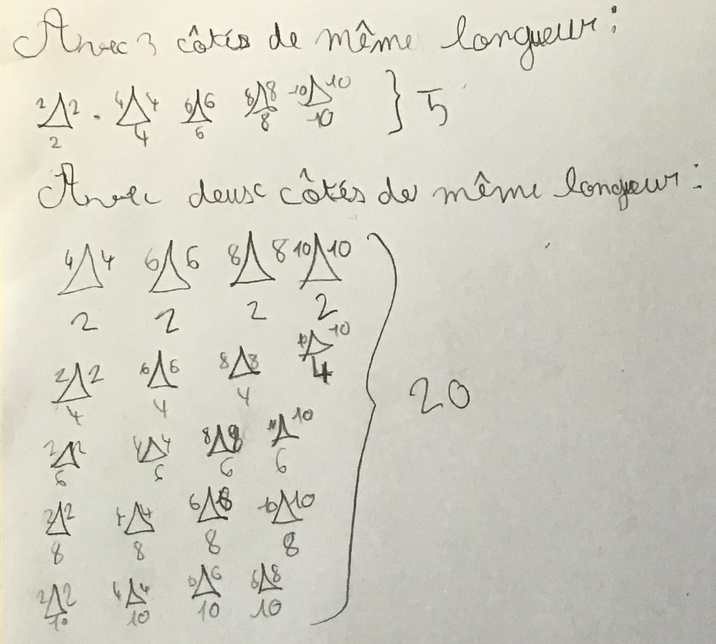 Avec 3 côtés de même longueur :
2 2 4 4 6 6 8 8 10 10 } 5
2 4 6 8 10
Avec deux côtés de même longueur :
4 4 6 6 8 8 10 10
2 2 2 2
2 2 6 6 8 8 10 10
4 4 4 4
20
2 2 4 4 8 8 10 10
6 6 6 6
2 2 4 4 6 6 10 10
8 8 8 8
2 2 4 4 6 6 8 8
10 10 10 10